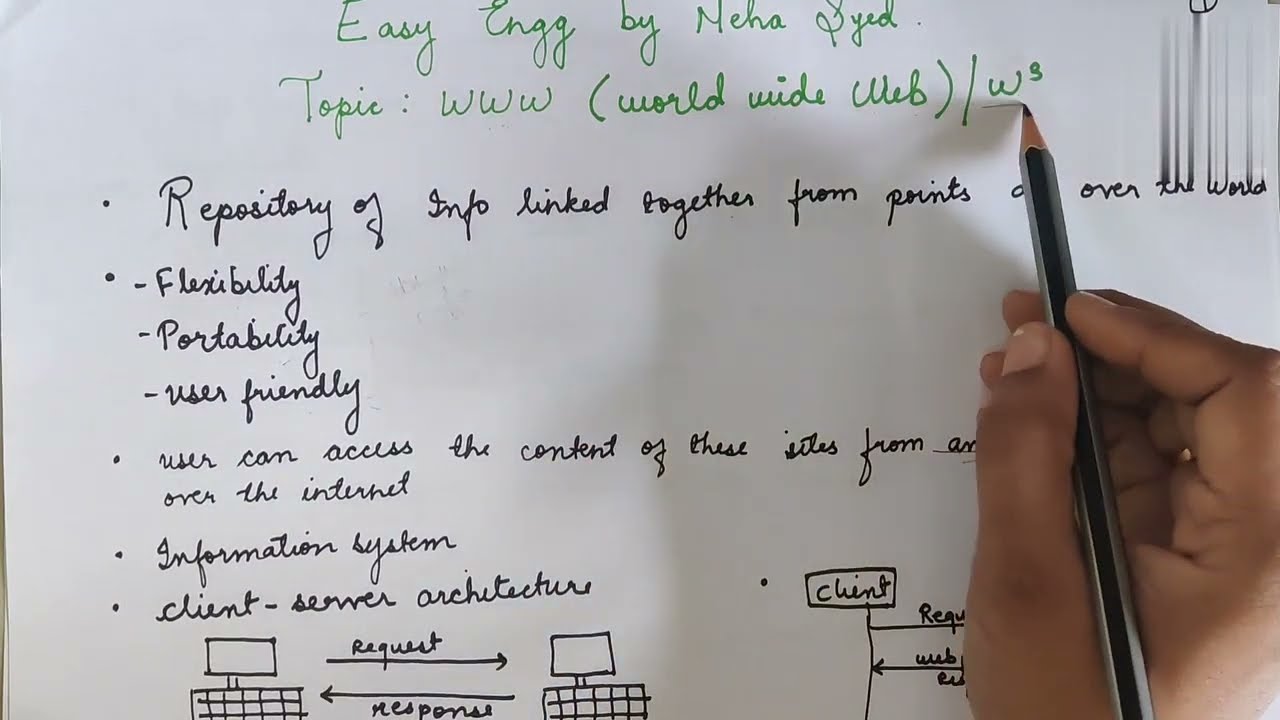 Easy Engg by Neha Syed.
Topic: WWW (world wide Web) / W³
• Repository of Info linked together from points over the World
• - Flexibility
- Portability
- user friendly
• user can access the content of these sites from
over the internet
• Information system
• client - server architecture
• client
Request
response
web